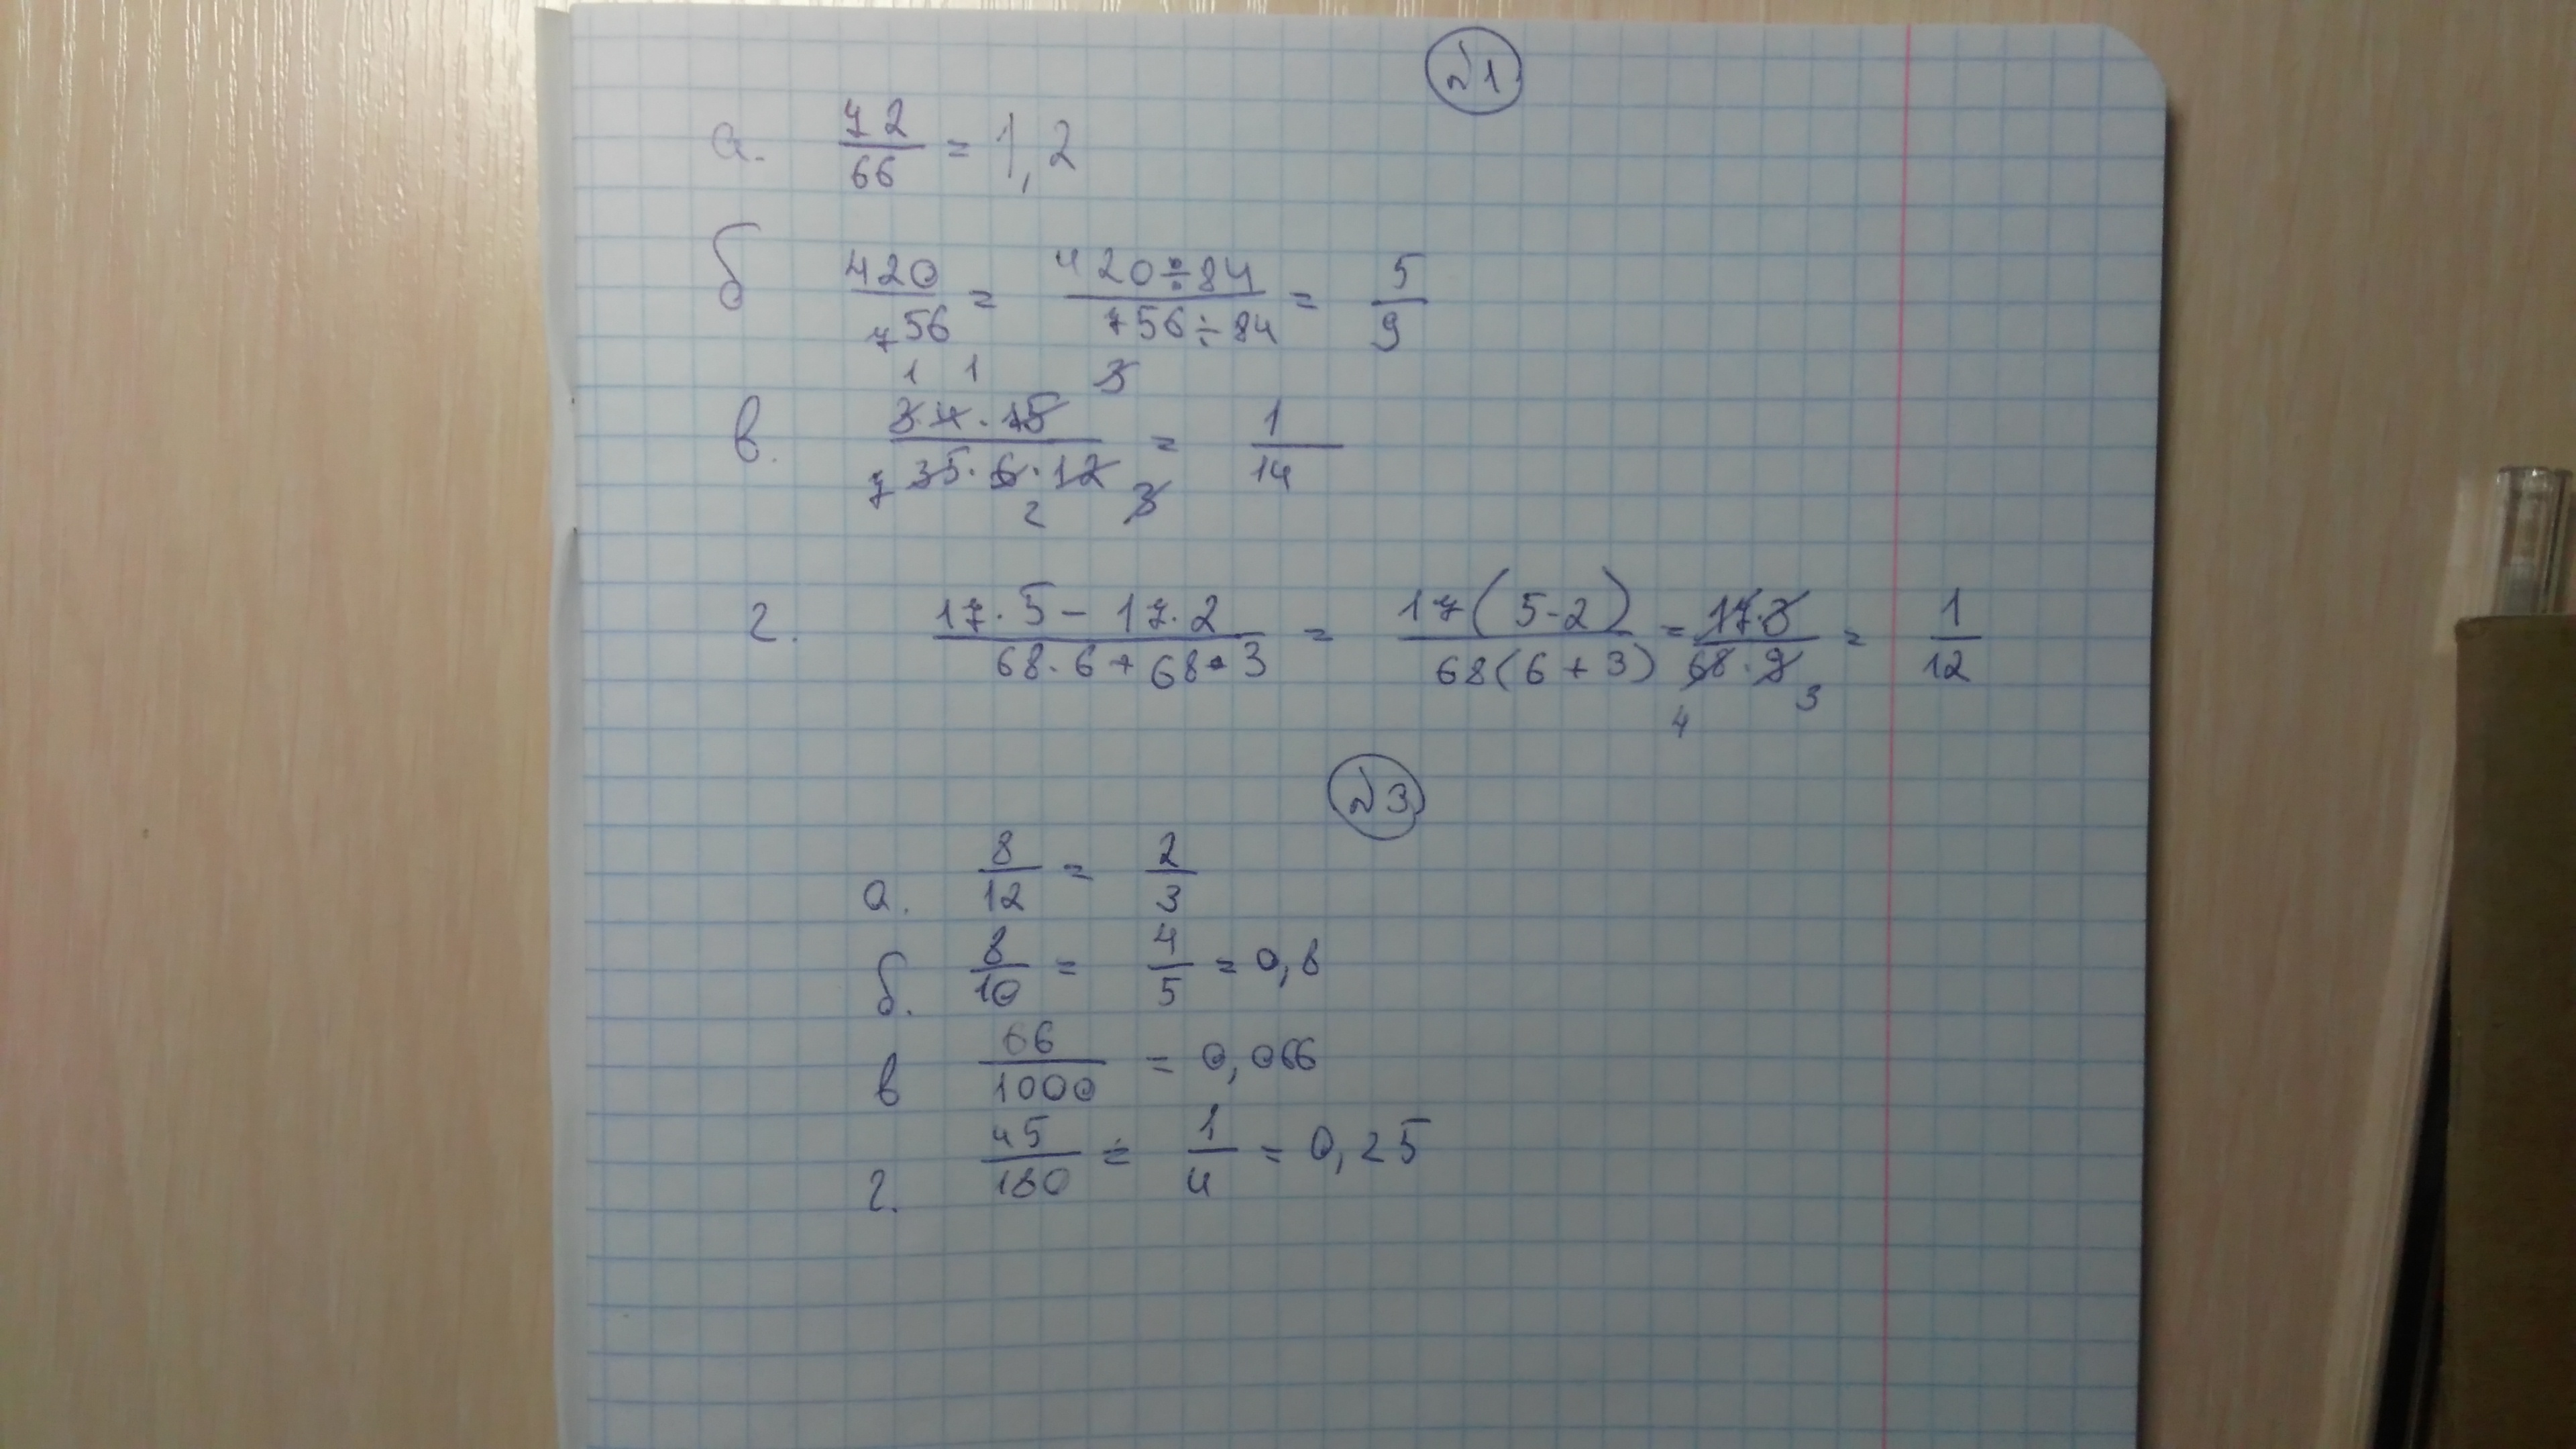 №1
а. 72/66 = 1,2
б 420/756 = 420÷84/756÷84 = 5/9
1 1 3
в. 3·4·15/35·6·12 = 1/14
7 2 3
г. 17·5-17·2/68·6+68·3 = 17(5-2)/68(6+3) = 17·3/68·9 = 1/12
4 3
№3
а. 8/12 = 2/3
б. 8/10 = 4/5 = 0,8
в 66/1000 = 0,066
г. 45/180 = 1/4 = 0,25